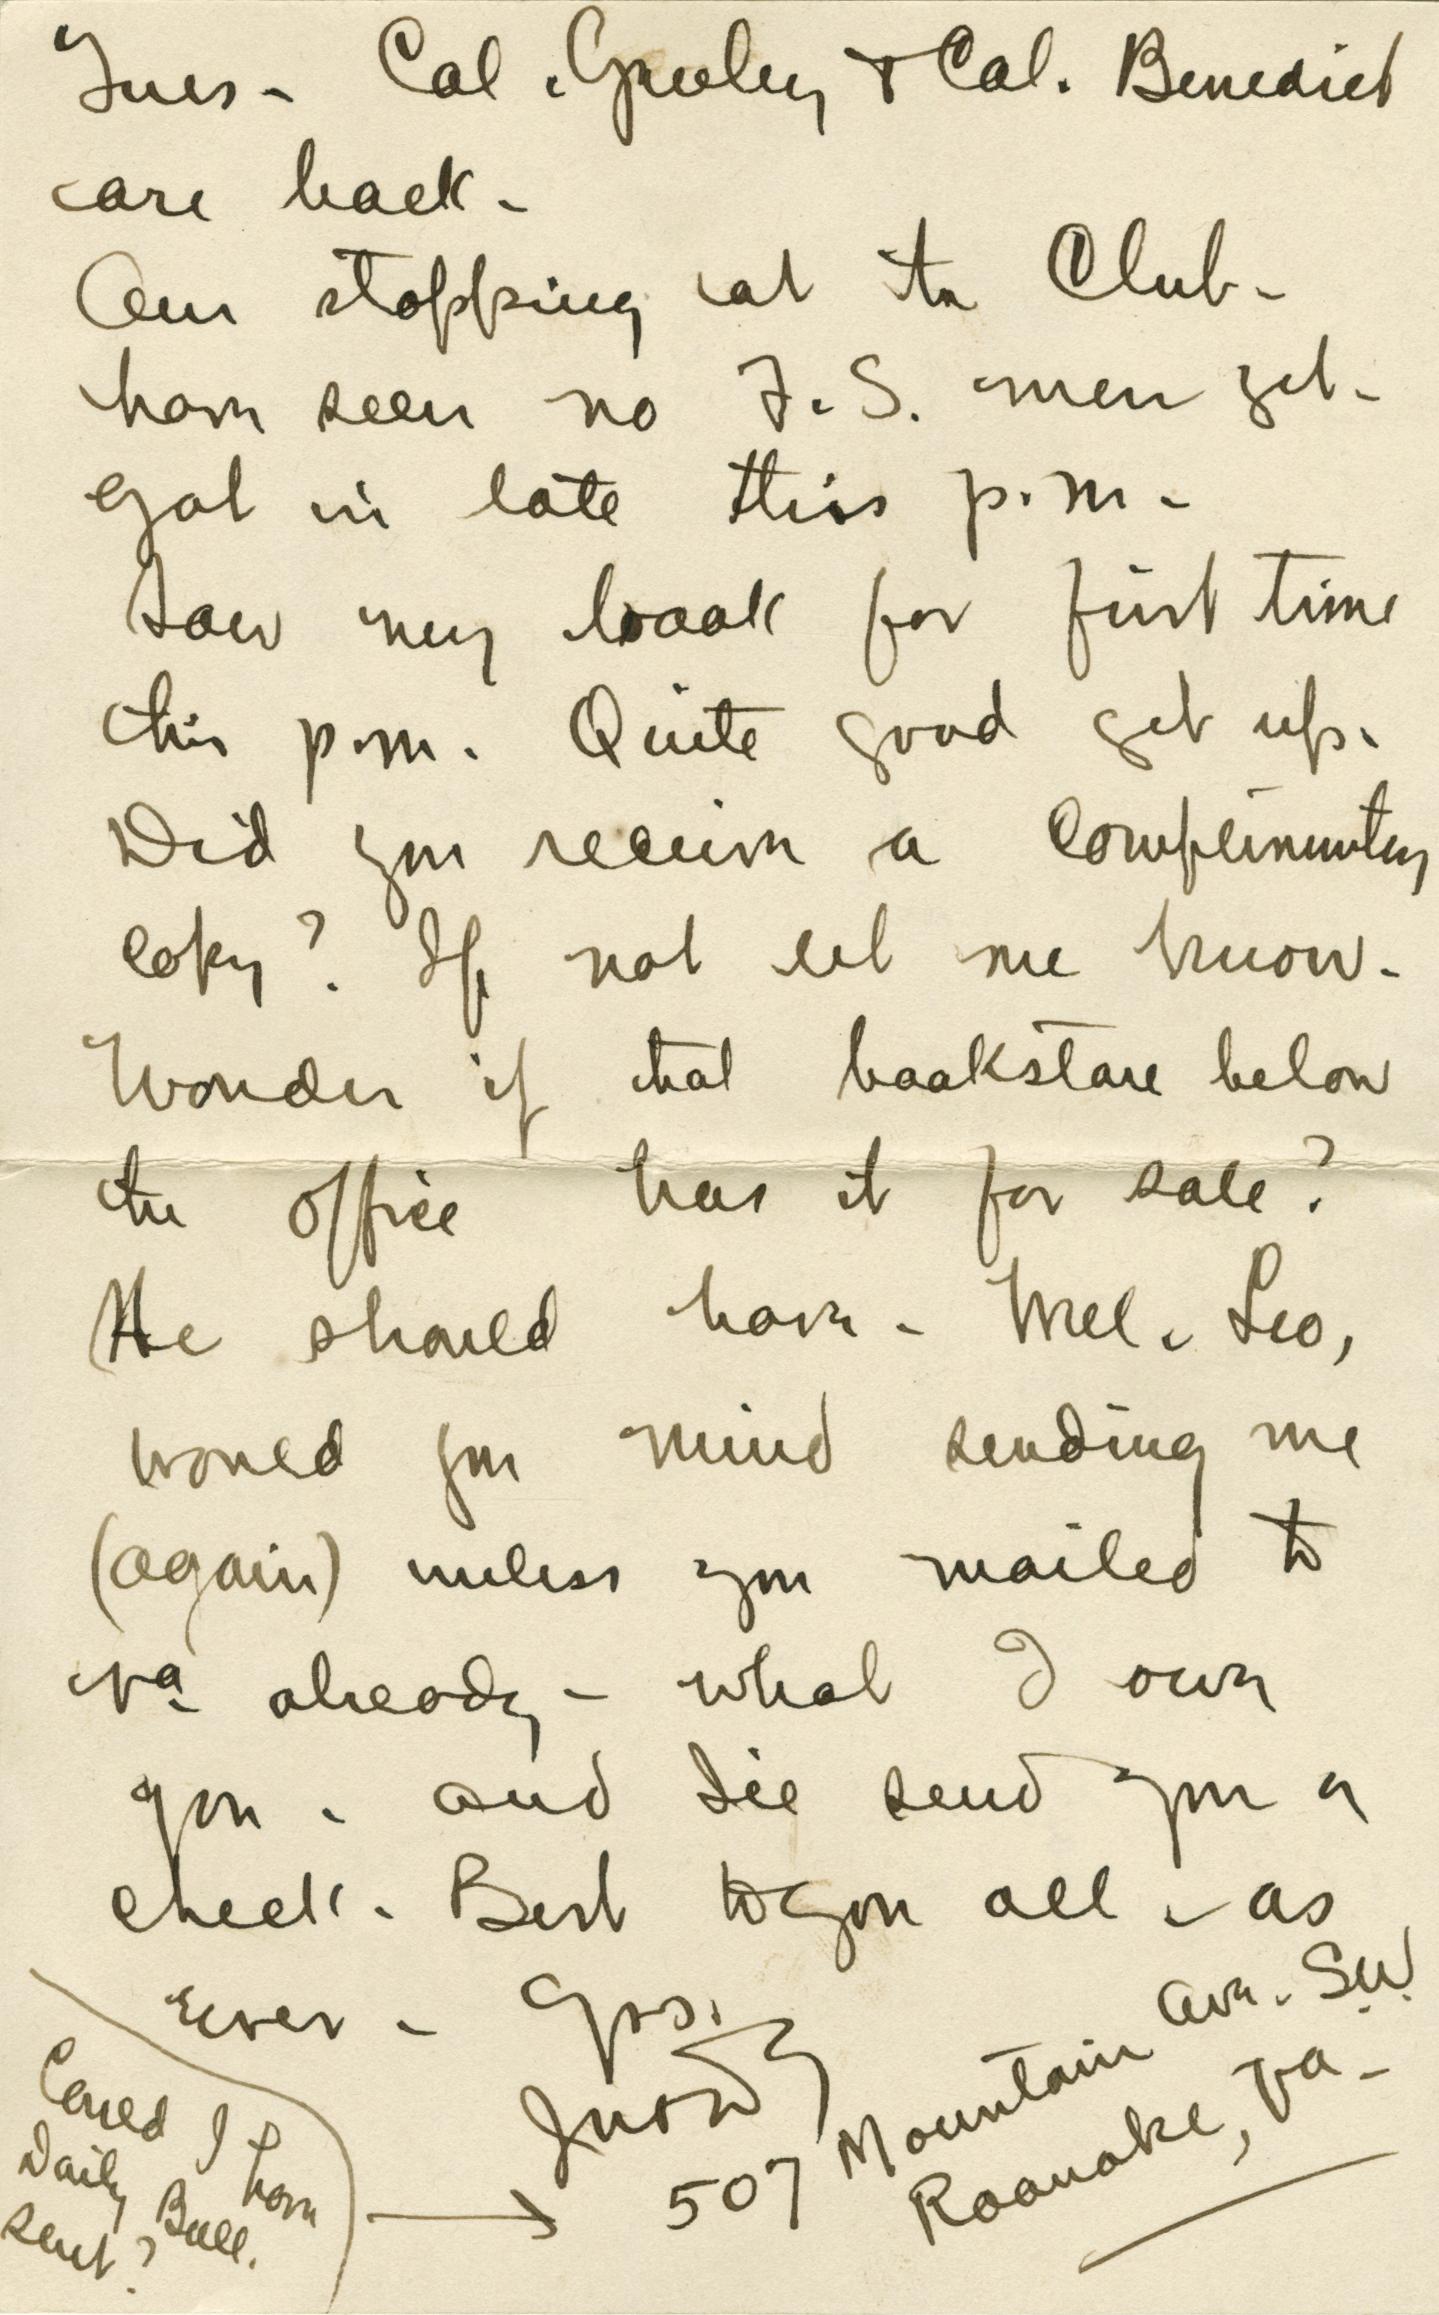 Tues - Col. Greeley & Col. Benedict
are back -
Am stopping at the Club -
have seen no F.S. men yet -
got in late this p.m. -
Saw my book for first time
this p.m. Quite good get up.
Did you receive a complimentary
copy? If not let me know -
Wonder if that bookstore below
the office has it for sale?
He should have - Well, Leo,
would you mind sending me
(again) unless you mailed to
Va. already - what I owe
you - and I'll send you a
check. Best to you all - as
ever - Yrs.
507 Mountain Ave. S.W.
Roanoke, Va -
Could I have
Daily Bull.
sent?